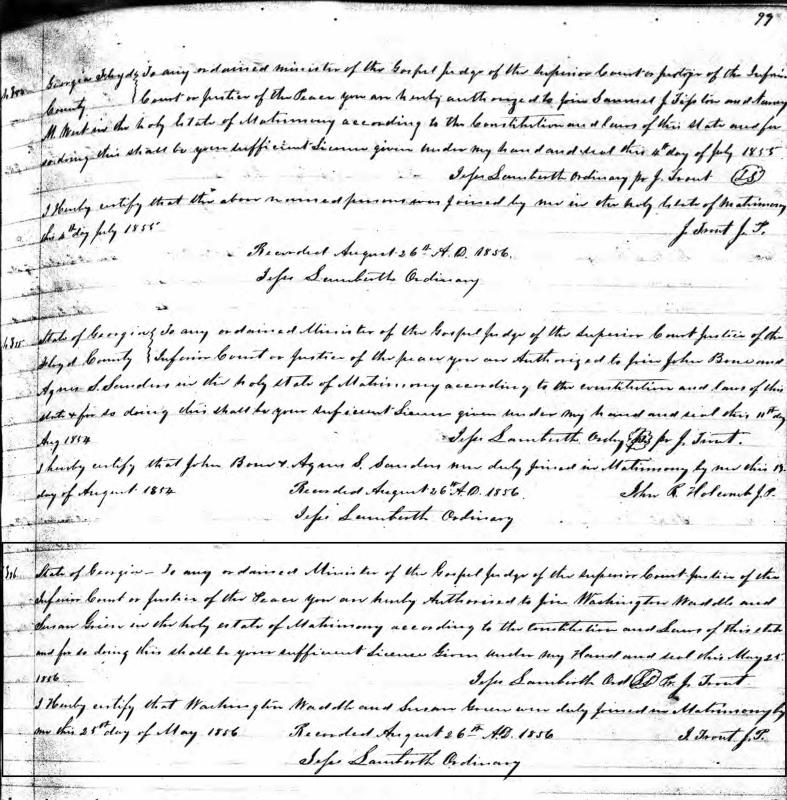 99
Georgia Floyd To any ordained minister of the Gospel Judge of the Superior Court or Justice of the Inferior
County Court or Justice of the Peace you are hereby authorized to Join Samuel J. Tipton and Nancy
M West in the holy Estate of Matrimony according to the Constitution and laws of this State and for
so doing this shall be your sufficient License given under my hand and seal this 4th day of July 1855
Jesse Lamberth Ordinary pr J. Trout LS
I Hereby certify that the above named persons was joined by me in the holy Estate of Matrimony
this 4th day July 1855 J. Trout J. P.
Recorded August 26th A.D. 1856.
Jesse Lamberth Ordinary
State of Georgia To any ordained Minister of the Gospel Judge of the Superior Court Justice of the
Floyd County Inferior Court or Justice of the peace you are Authorized to Join John Bone and
Agnes S. Sanders in the holy state of Matrimony according to the constitution and laws of this
state & for so doing this shall be your suficient License given under my hand and seal this 11th day
Aug 1854 Jesse Lamberth Ordy pr J. Trout.
I hereby certify that John Bone & Agnes S. Sanders were duly joined in Matrimony by me this
day of August 1854 Recorded August 26th A.D. 1856. John R. Holcomb J.P.
Jesse Lamberth Ordinary
State of Georgia - To any ordained Minister of the Gospel Judge of the Superior Court Justice of the
Inferior Court or Justice of the Peace You are hereby Authorised to Join Washington Waddle and
Susan Green in the holy estate of Matrimony according to the constitution and Laws of this state
and for so doing this shall be your sufficient License Given under my Hand and seal this May 25
1856 Jesse Lamberth Ord LS Pr. J. Trout
I Hereby certify that Washington Waddle and Susan Green were duly joined in Matrimony by
me this 25th day of May 1856 Recorded August 26th A.D. 1856 J. Trout J.P.
Jesse Lamberth Ordinary